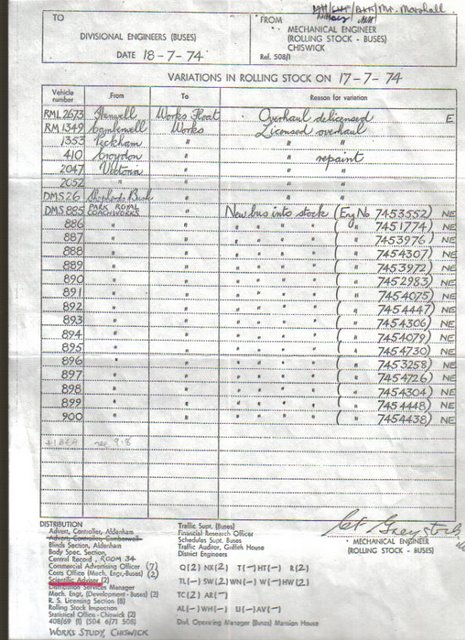 Mr. Marshall
TO
DIVISIONAL ENGINEERS (BUSES)
DATE 18-7-74
FROM
MECHANICAL ENGINEER
(ROLLING STOCK - BUSES)
CHISWICK
Ref. 508/1
VARIATIONS IN ROLLING STOCK ON 17-7-74
Vehicle number From To Reason for variation
RML 2673 Hanwell Works Float Overhaul delicensed E
RM 1349 Camberwell Works Licensed overhaul
1353 Peckham " " "
410 Croydon " " repaint
2047 Victoria " " "
2052 " " " "
DMS 26 Shepherds Bush " " "
DMS 885 PARK ROYAL COACHWORKS " New bus into stock (Eng No 7453552) NE
886 " " " " " " ( " 7451774) NE
887 " " " " " " ( " 7453976) NE
888 " " " " " " ( " 7454307) NE
889 " " " " " " ( " 7453972) NE
890 " " " " " " ( " 7452983) NE
891 " " " " " " ( " 7454075) NE
892 " " " " " " ( " 7454447) NE
893 " " " " " " ( " 7454306) NE
894 " " " " " " ( " 7454079) NE
895 " " " " " " ( " 7454730) NE
896 " " " " " " ( " 7453258) NE
897 " " " " " " ( " 7454726) NE
898 " " " " " " ( " 7454304) NE
899 " " " " " " ( " 7454448) NE
900 " " " " " " ( " 7454438) NE
DISTRIBUTION
Advert. Controller, Aldenham
Advert. Controller, Camberwell
Blinds Section, Aldenham
Body Spec. Section,
Central Record, ROOM 34
Commercial Advertising Officer (7)
Costs Office (Mech. Engr. Buses) (2)
Scientific Adviser (2)
Distribution Services Manager
Mech. Engr. (Development - Buses) (2)
R. S. Licensing Section (8)
Rolling Stock Inspection
Statistical Office - Chiswick (2)
408/69 (1) (504 6/71 508)
WORKS STUDY, CHISWICK
Traffic Supt. (Buses)
Financial Research Officer
Schedules Supt. Buses
Traffic Auditor, Griffith House
District Engineers
Q(2) NX(2) T(-) HT(-) R(2)
TL(-) SW(2) WN(-) W(-) HW(2)
TC(2) AR(-)
AL(-) WH(-) U(-) AV(-)
Divl. Operating Manager (Buses) Mansion House
MECHANICAL ENGINEER
(ROLLING STOCK - BUSES)